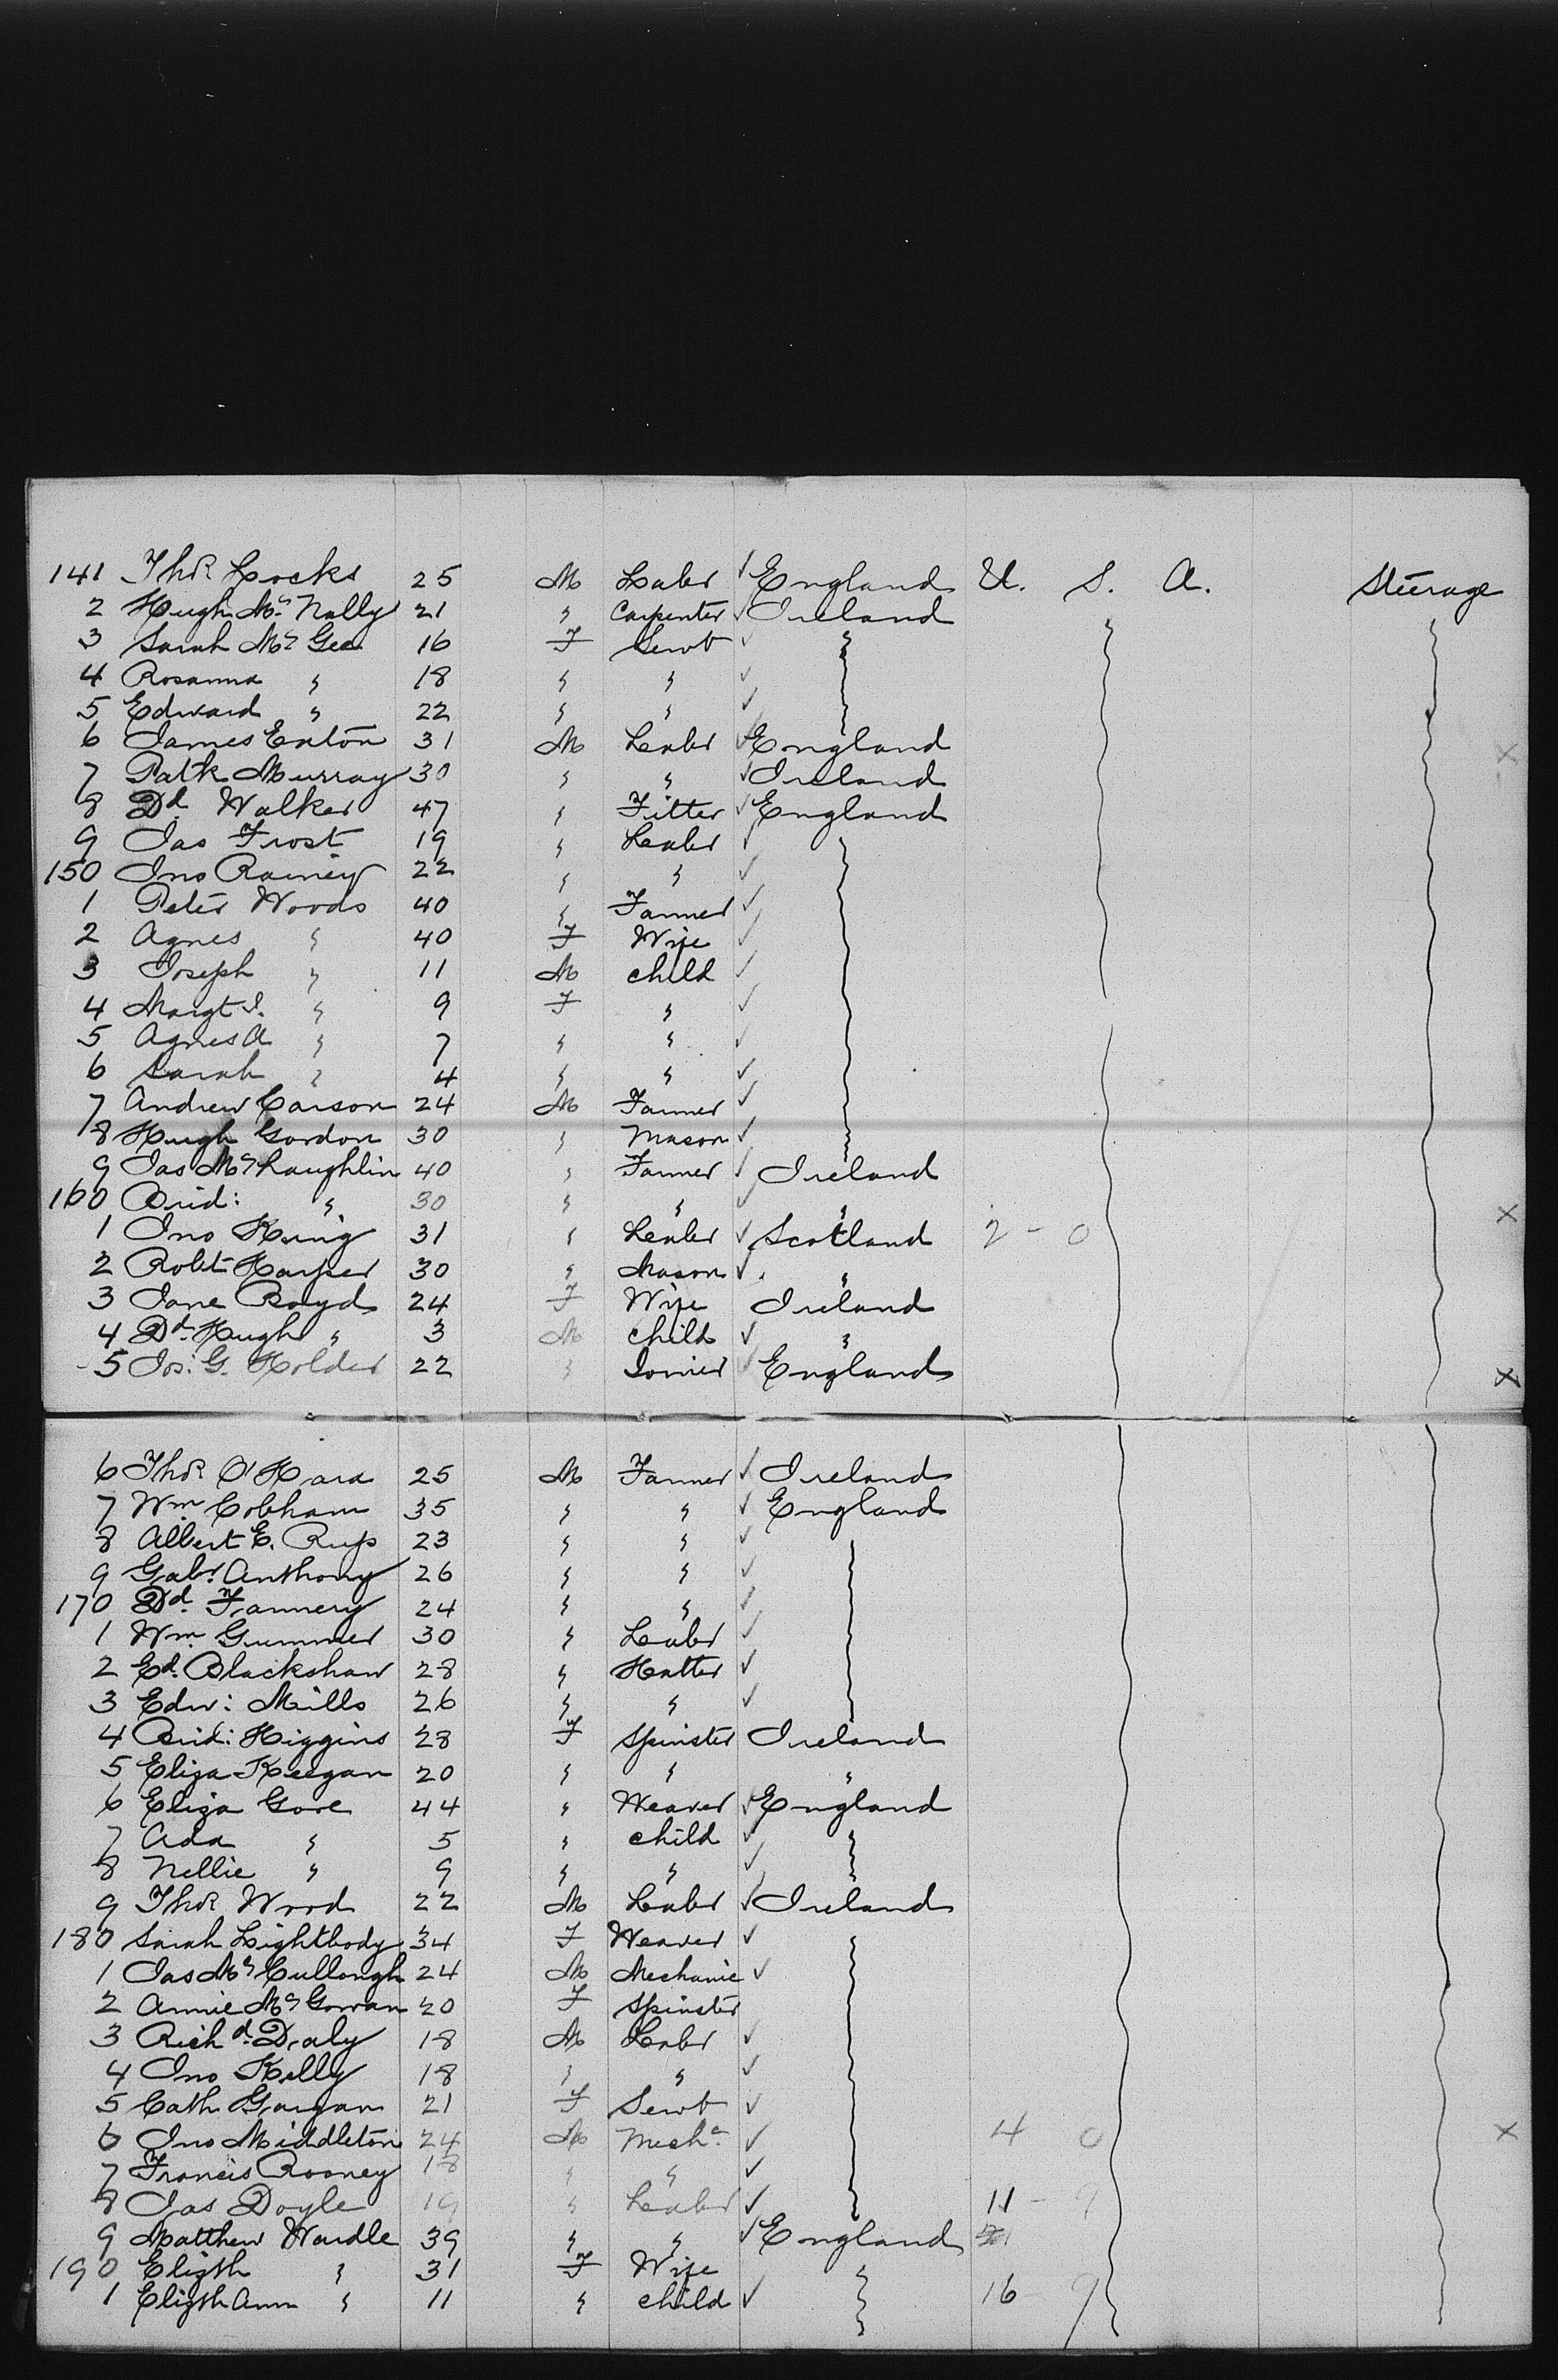 141 Thos Locks 25 M Labr England U. S. A. Steerage
2 Hugh Mc Nally 21 " Carpenter Ireland
3 Sarah Mc Gee 16 F Servt "
4 Rosanna " 18 " "
5 Edward " 22 " "
6 James Eaton 31 M Labr England
7 Patk Murray 30 " " Ireland
8 Dd Walker 47 " Fitter England
9 Jas Frost 19 " Labr
150 Jno Rainey 22 " "
1 Peter Woods 40 " Farmer
2 Agnes " 40 F Wife
3 Joseph " 11 M child
4 Margt J. " 9 F "
5 Agnes A " 7 " "
6 Sarah " 4 " "
7 Andrew Carson 24 M Farmer
8 Hugh Gordon 30 " Mason
9 Jas Mc Laughlin 40 " Farmer Ireland
160 Brid: " 30 " " "
1 Jno King 31 " Labr Scotland 2 - 0
2 Robt Harper 30 " Mason "
3 Jane Boyd 24 F Wife Ireland
4 Dd Hugh " 3 M child "
5 Jos: G. Holder 22 " Joiner England
6 Thos O'Hara 25 M Farmer Ireland
7 Wm Cobham 35 " " England
8 Albert E. 23 " "
9 Gabl Anthony 26 " "
170 Dd Flannery 24 " "
1 Wm Gummer 30 " Labr
2 Ed. Blackshaw 28 " Hatter
3 Edw: Mills 26 " "
4 Brid: Higgins 28 F Spinster Ireland
5 Eliza Keegan 20 " " "
6 Eliza Gore 44 " Weaver England
7 Ada " 5 " child "
8 Nellie " 9 " "
9 Thos Wood 22 M Labr Ireland
180 Sarah Lightbody 34 F Weaver
1 Jas Mc Cullough 24 M Mechanic
2 Annie Mc Gowan 20 F Spinster
3 Richd Daly 18 M Labr
4 Jno Kelly 18 " "
5 Cath Gargan 21 F Servt
6 Jno Middleton 24 M Mechc 4 0
7 Francis Rooney 18 " "
8 Jas Doyle 19 " Labr 11 - 9
9 Matthew Wardle 39 " " England
190 Elizth " 31 F Wife
1 Elizth Ann " 11 " child 16 9